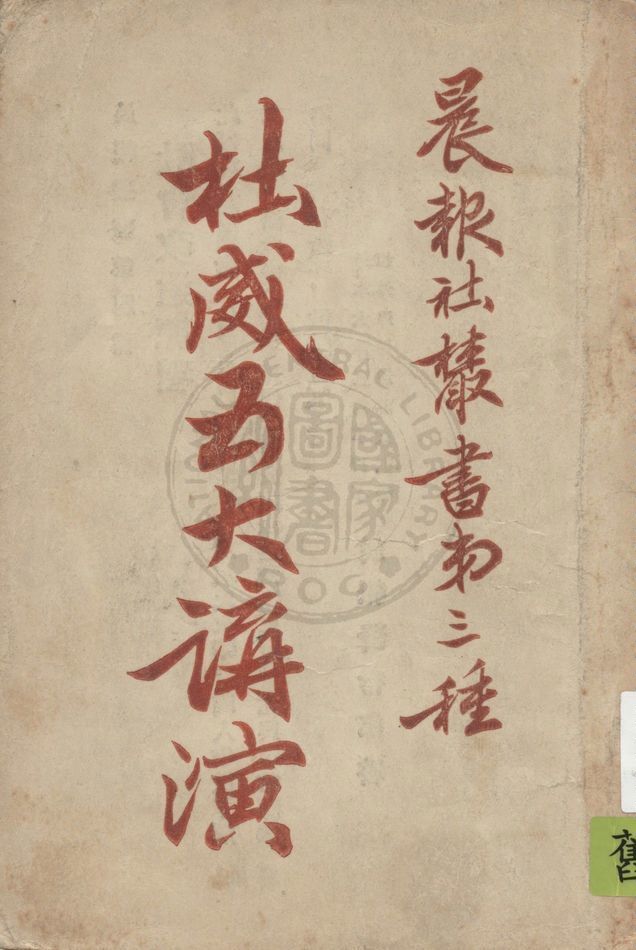 晨報社叢書第三種
杜威五大講演
國家圖書
GENERAL LIBRARY
ROC
舊